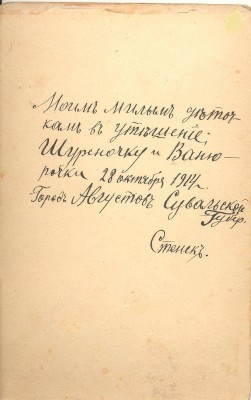 Моимъ милымъ дѣточ
камъ въ утѣшенiе;
Шурочкѣ и Ваню-
рочки 28 октября 1914 г.
Городъ Августовъ Сувалкской
Губер.
Стенскъ.